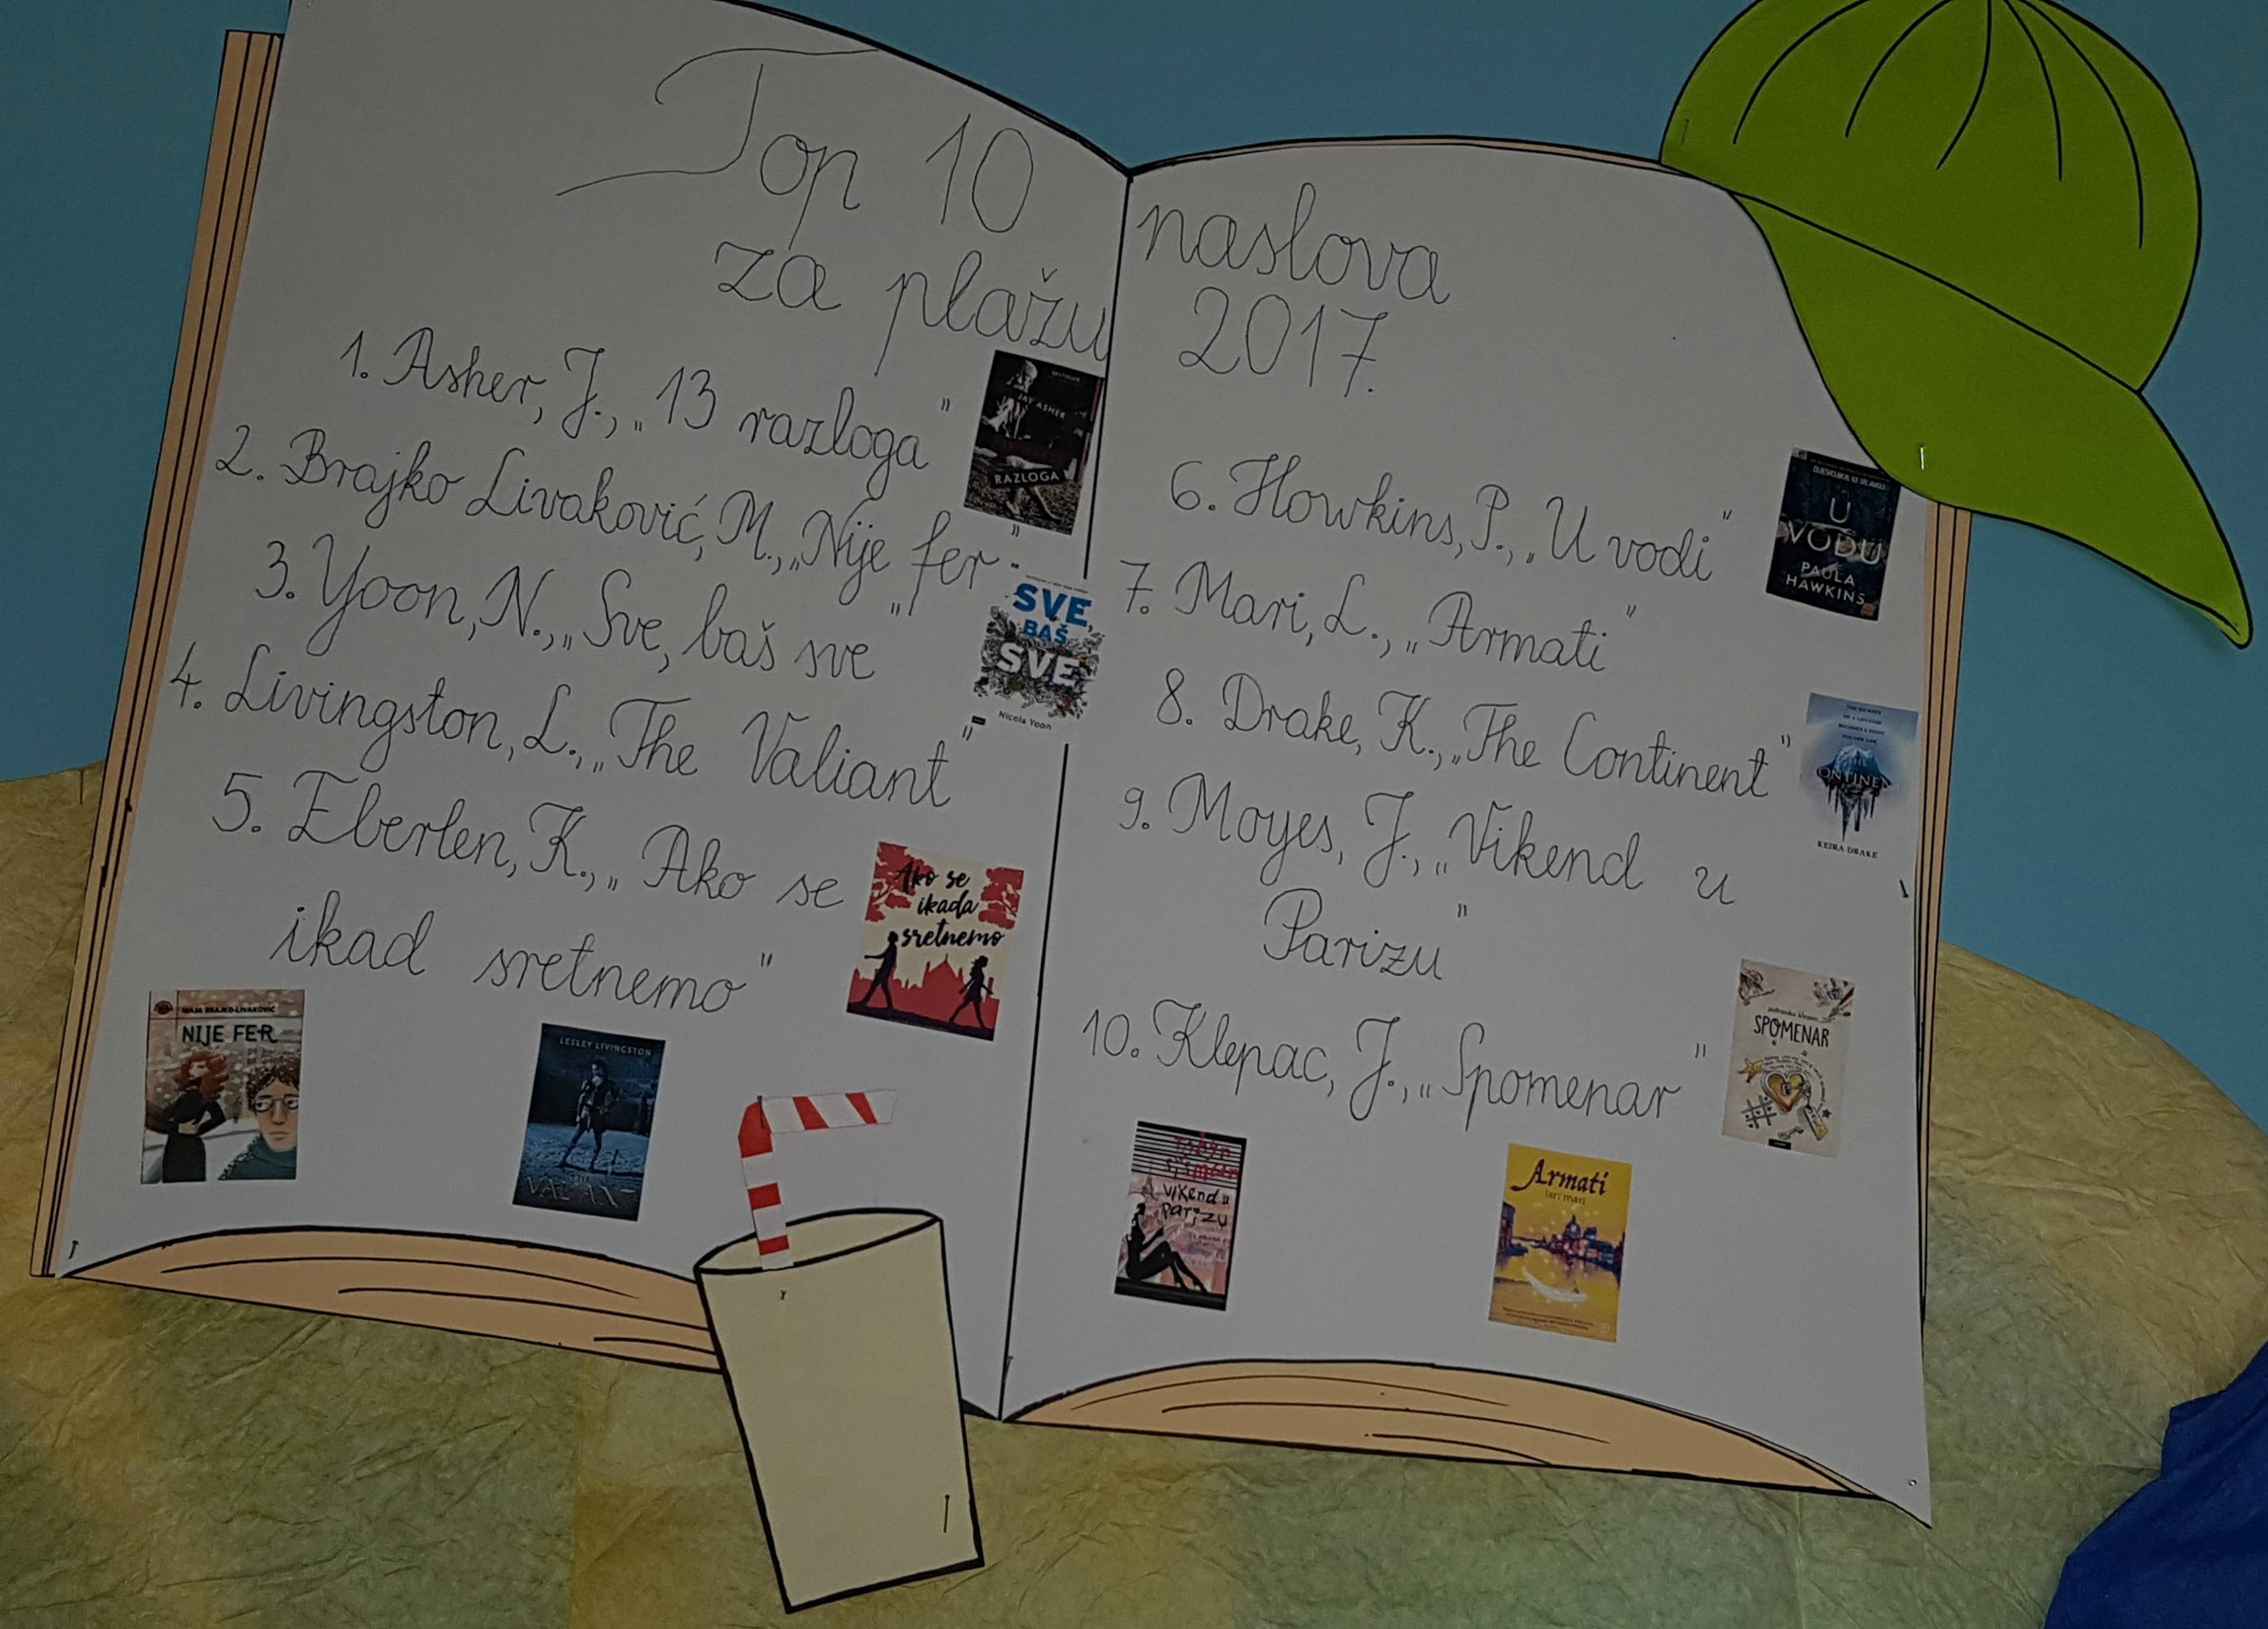 Top 10 naslova
za plažu 2017.
1. Asher, J., „13 razloga"
2. Brajko Livaković, M., „Nije fer"
3. Yoon, N., „Sve, baš sve"
4. Livingston, L., „The Valiant"
5. Eberlen, K., „Ako se
ikad sretnemo"
6. Howkins, P., „U vodi"
7. Mari, L., „Armati"
8. Drake, K., „The Continent"
9. Moyes, J., „Vikend u
Parizu"
10. Klepac, J., „Spomenar"
JAY ASHER
RAZLOGA
SVE,
BAŠ
SVE
Nicola Yoon
Ako se
ikada
sretnemo
NIJE FER
LESLEY LIVINGSTON
U
VODU
PAULA
HAWKINS
KEIRA DRAKE
SPOMENAR
Vikend u
Parizu
Armati
lari mari